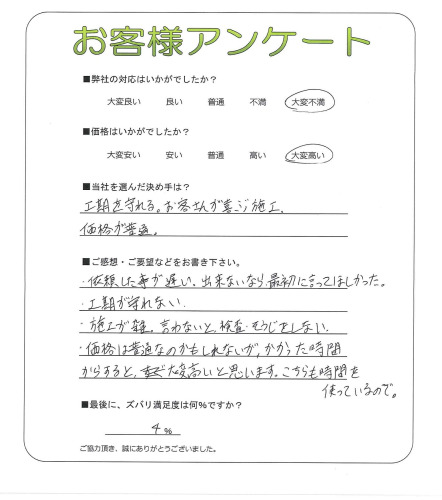 お客様アンケート
■弊社の対応はいかがでしたか?
大変良い 良い 普通 不満 大変不満
■価格はいかがでしたか?
大変安い 安い 普通 高い 大変高い
■当社を選んだ決め手は?
工期を守れる。お客さんが喜ぶ施工。
価格が普通。
■ご感想・ご要望などをお書き下さい。
・依頼した事が遅い、出来ないなら最初に言ってほしかった。
・工期が守れない
・施工が雑。言わないと、検査・そうじをしない
・価格は普通なのかもしれないが、かかった時間
からすると、大変高いと思います。こちらも時間を
使っているので。
■最後に、ズバリ満足度は何%ですか?
4 %
ご協力頂き、誠にありがとうございました。